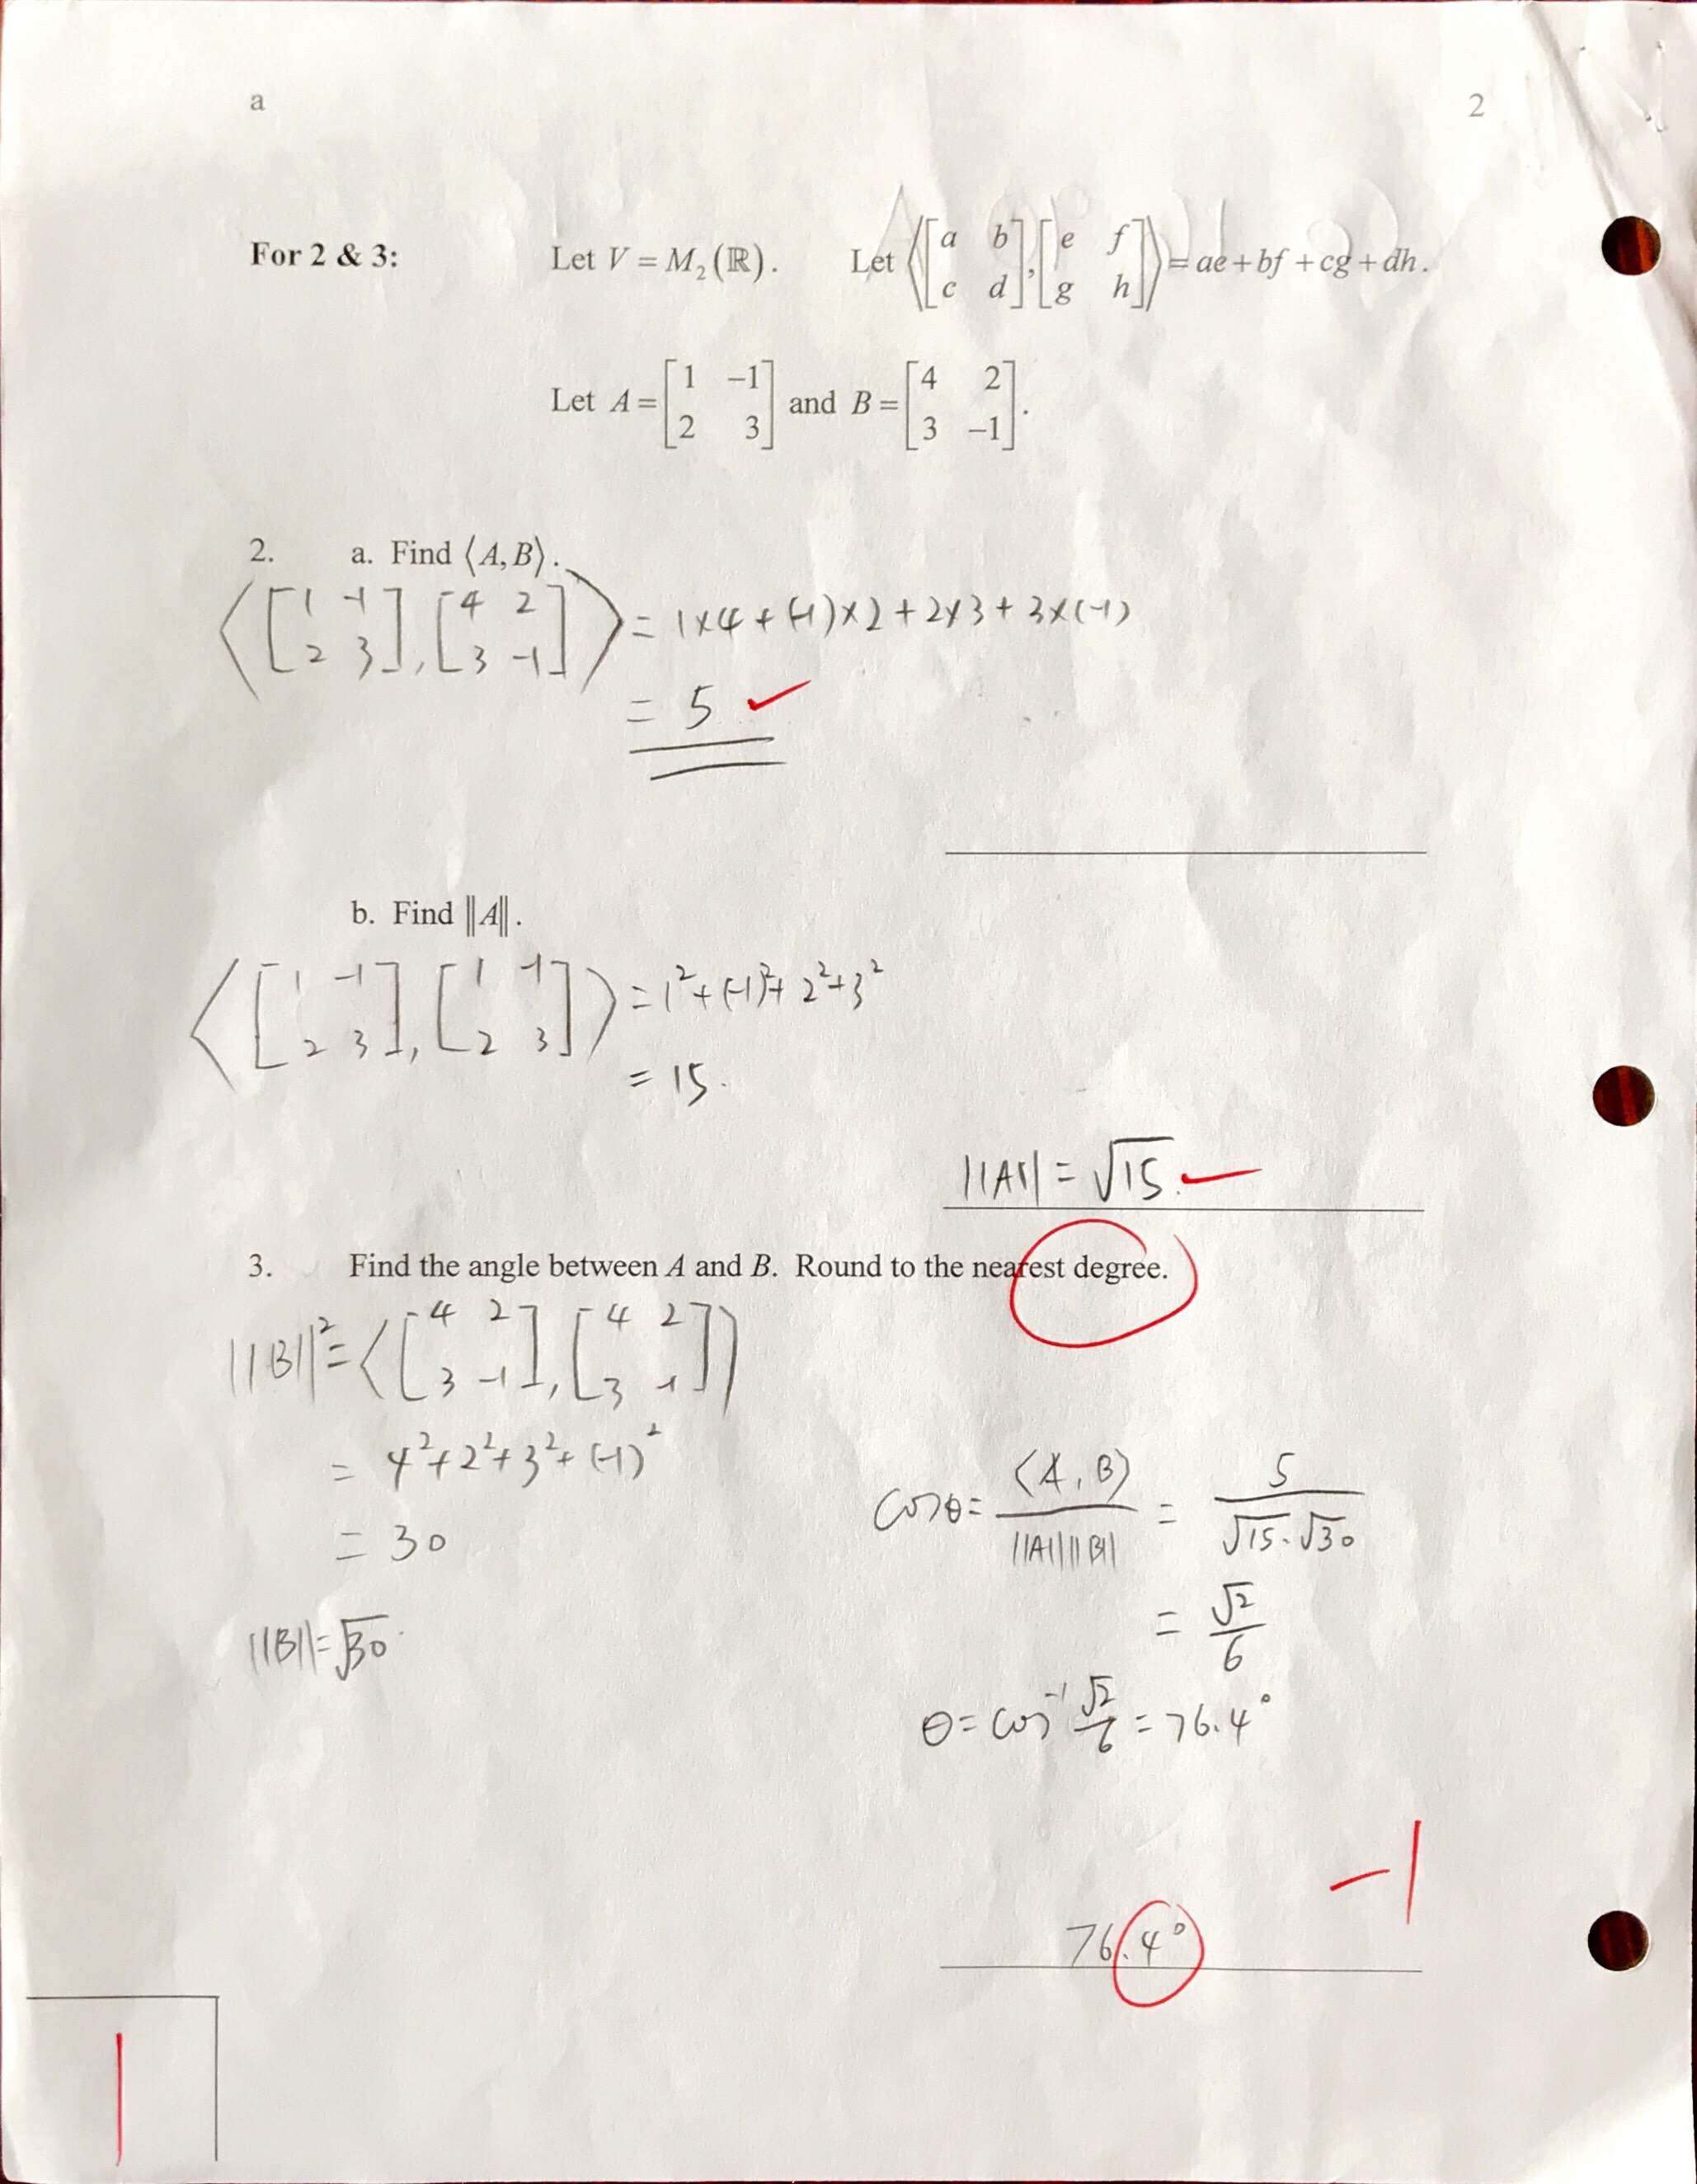 a 2
For 2 & 3: Let V = M₂(ℝ). Let ⟨[a b; c d], [e f; g h]⟩ = ae + bf + cg + dh.
Let A = [1 −1; 2 3] and B = [4 2; 3 −1].
2. a. Find ⟨A, B⟩.
⟨[1 -1; 2 3], [4 2; 3 -1]⟩ = 1×4 + (-1)×2 + 2×3 + 3×(-1)
= 5 ✓
b. Find ‖A‖.
⟨[1 -1; 2 3], [1 -1; 2 3]⟩ = 1² + (-1)² + 2² + 3²
= 15.
||A|| = √15. ✓
3. Find the angle between A and B. Round to the nearest degree.
||B||² = ⟨[4 2; 3 -1], [4 2; 3 -1]⟩
= 4² + 2² + 3² + (-1)²
= 30
||B|| = √30.
cosθ = ⟨A, B⟩ / ||A|| ||B|| = 5 / √15 · √30
= √2 / 6
θ = cos⁻¹ √2/6 = 76.4°
-1
76.4°
1